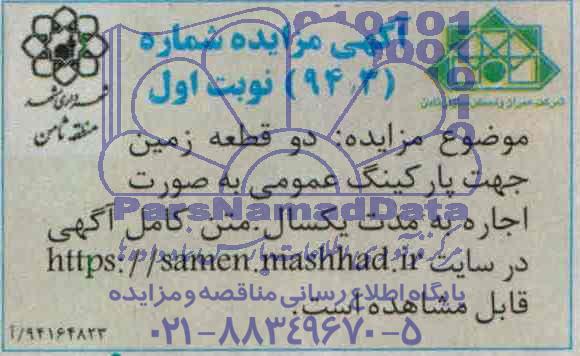 آگهی مزایده شماره
(۹۴.۳) نوبت اول
شهرداری مشهد
منطقه ثامن
شرکت عمران و مسکن سازان ثامن
موضوع مزایده: دو قطعه زمین
جهت پارکینگ عمومی به صورت
اجاره به مدت یکسال. متن کامل آگهی
در سایت https://samen.mashhad.ir
قابل مشاهده است.
۹۴۱۶۴۸۲۳/آ
ParsNamadData
پایگاه اطلاع رسانی مناقصه و مزایده
۰۲۱-۸۸۳۴۹۶۷۰-۵